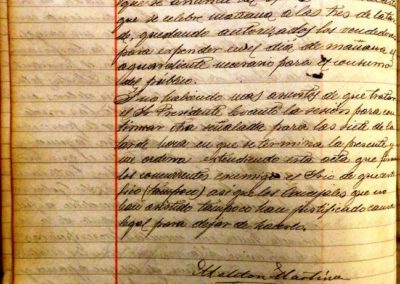 que se celebre mañana a las tres de la tar
de, quedando autorizados los vendedores
para expender en el dia de mañana el
aguardiente necesario para el consumo
del publico.
Y no habiendo mas asuntos de que tratar
el Sr Presidente levanto la sesion para con
tinuar otra señalada para las siete de la
tarde hora en que se termina la presente y
se ordena estendiendo esta acta que firman
los concurrentes conmigo el Srio de que certi
fico (tampoco) asi que los Concejales que no
han asistido tampoco han justificado causa
legal para dejar de hacerlo.
Martina